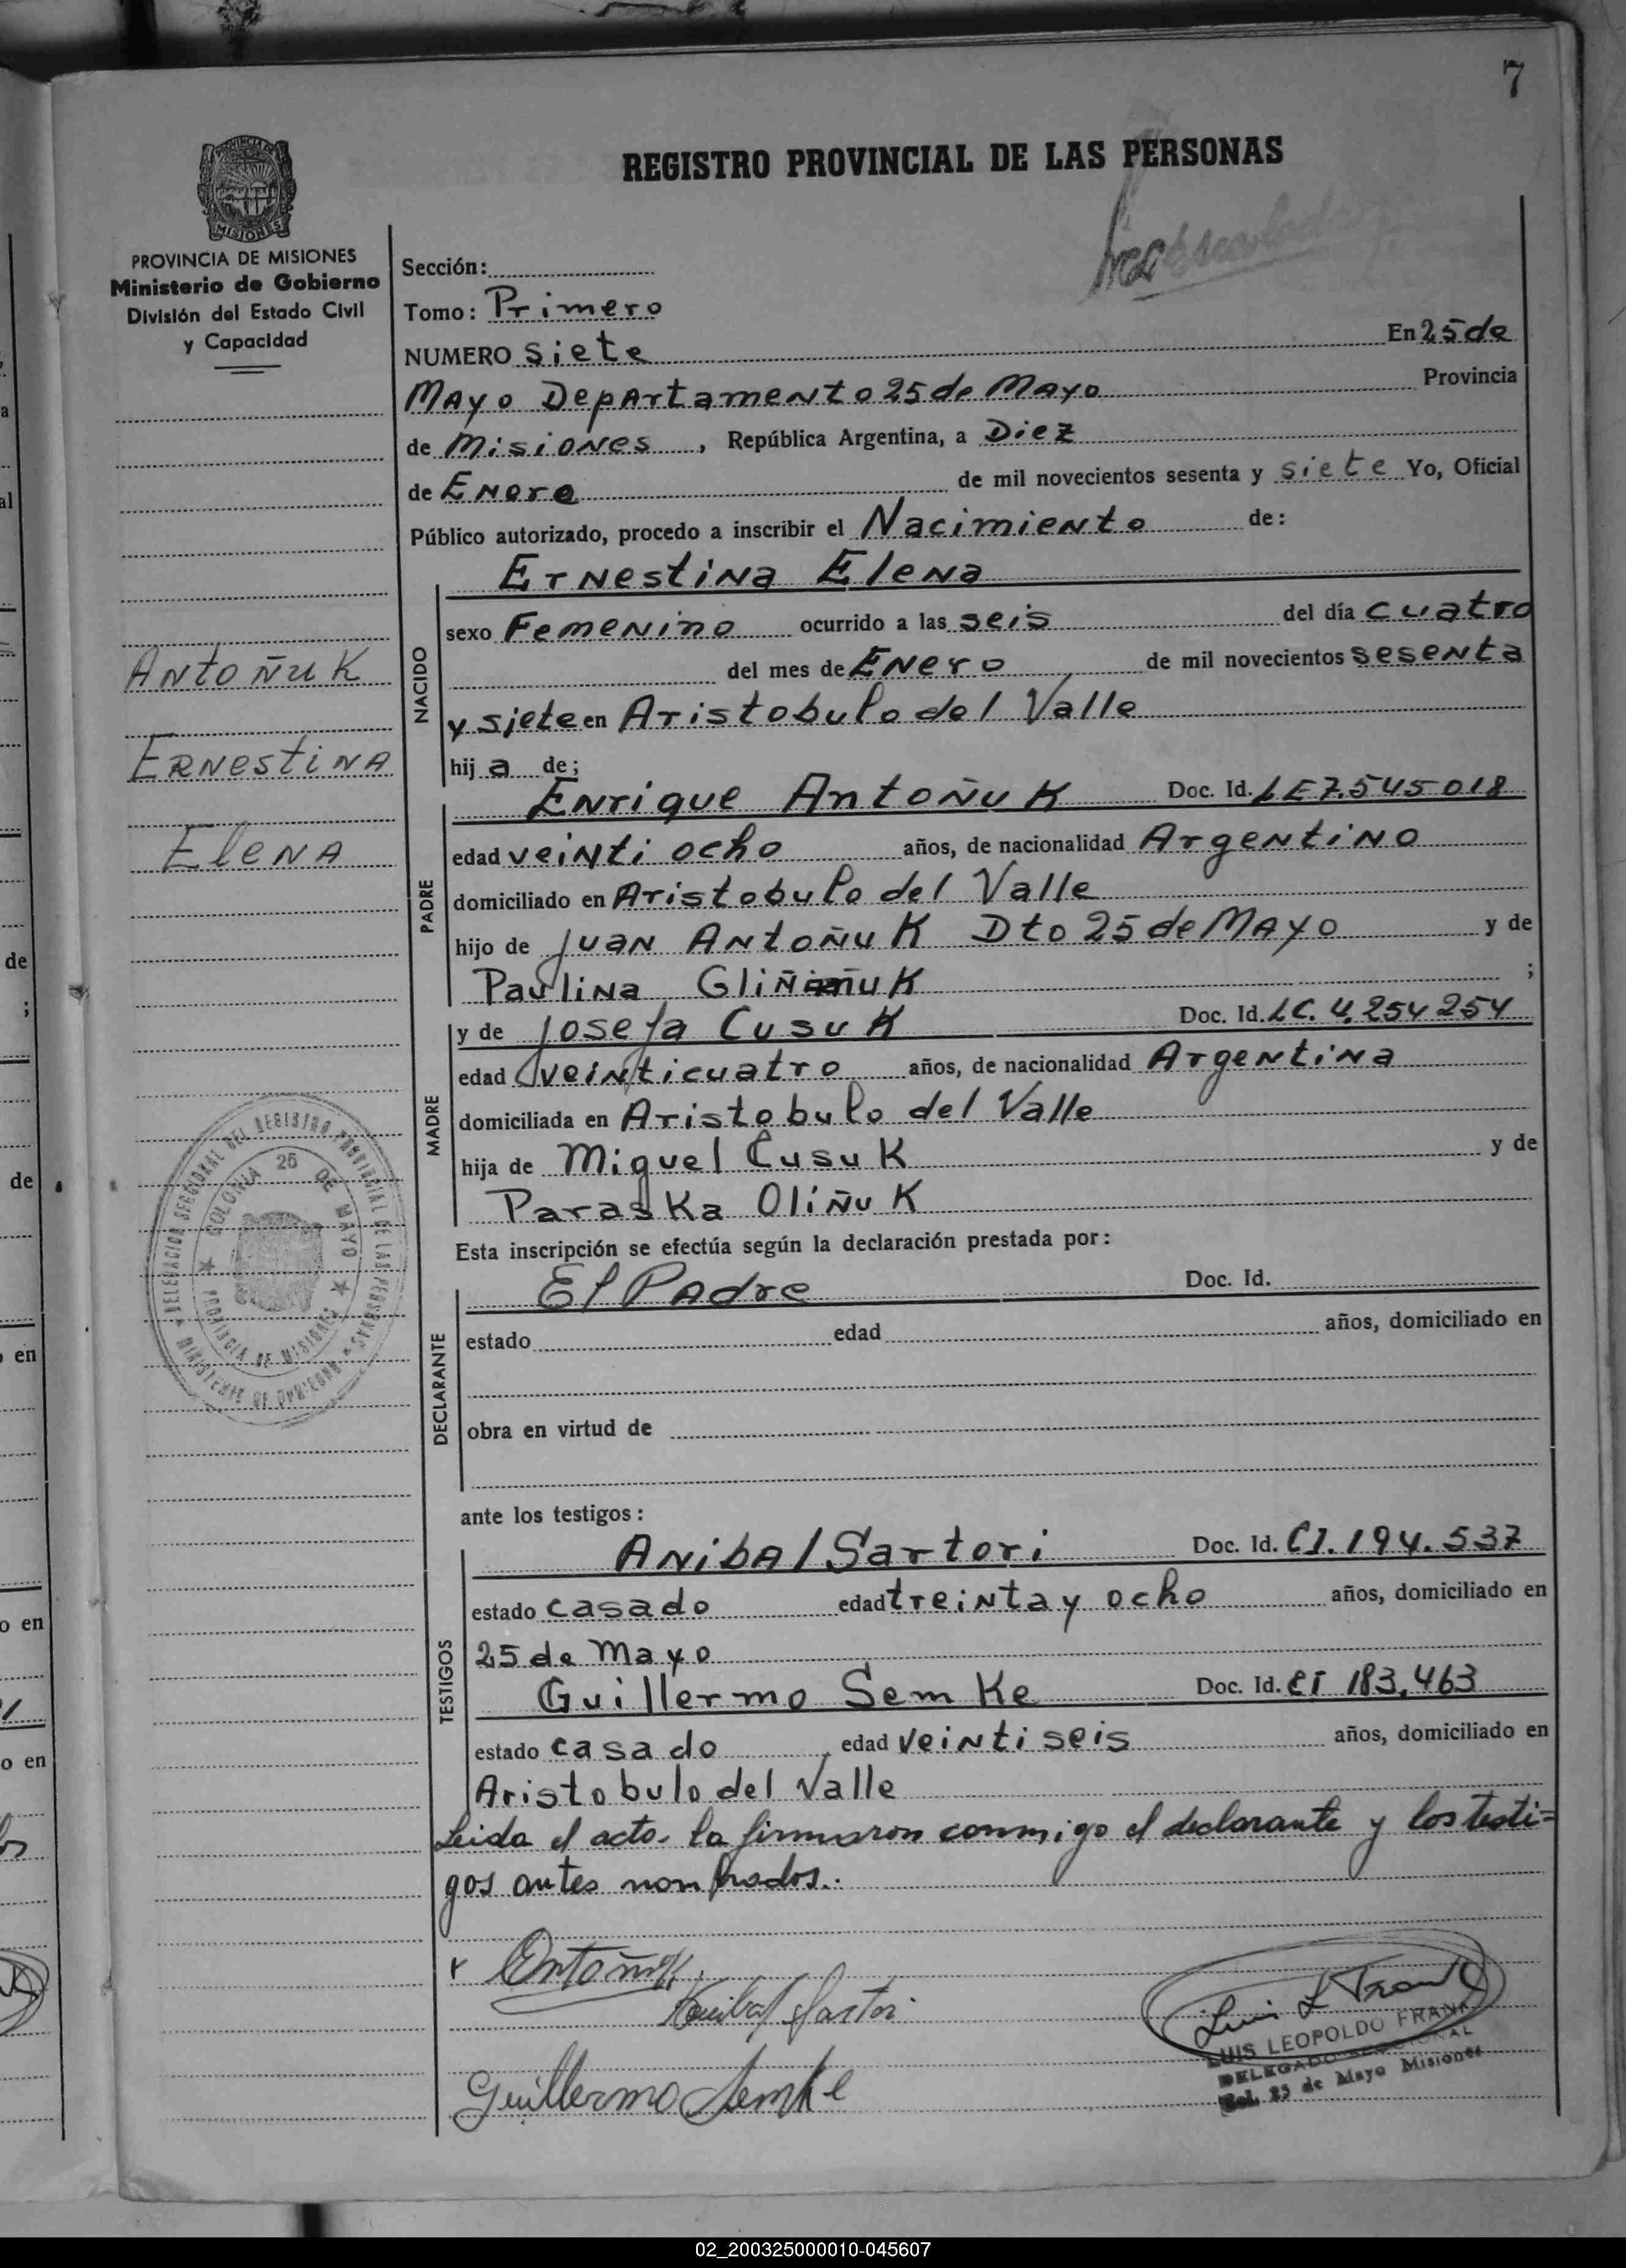 7
REGISTRO PROVINCIAL DE LAS PERSONAS
PROVINCIA DE
MISIONES
PROVINCIA DE MISIONES
Ministerio de Gobierno
División del Estado Civil
y Capacidad
Antoñuk
Ernestina
Elena
Sección:
Tomo: Primero
NUMERO siete En 25 de
Mayo Departamento 25 de Mayo Provincia
de Misiones, República Argentina, a Diez
de Enero de mil novecientos sesenta y siete Yo, Oficial
Público autorizado, procedo a inscribir el Nacimiento de:
NACIDO
Ernestina Elena
sexo Femenino ocurrido a las seis del día cuatro
del mes de Enero de mil novecientos sesenta
y siete en Aristobulo del Valle
hija de;
PADRE
Enrique Antoñuk Doc. Id. LE 7.545018
edad veinti ocho años, de nacionalidad Argentino
domiciliado en Aristobulo del Valle
hijo de Juan Antoñuk Dto 25 de Mayo y de
Paulina ;
MADRE
y de Josefa Cusuk Doc. Id. LC. 4.254254
edad veinticuatro años, de nacionalidad Argentina
domiciliada en Aristobulo del Valle
hija de Miguel Cusuk y de
Paraska Oliñuk
Esta inscripción se efectúa según la declaración prestada por:
DECLARANTE
El Padre Doc. Id.
estado edad años, domiciliado en
obra en virtud de
ante los testigos:
TESTIGOS
Anibal Sartori Doc. Id. CI. 194.537
estado casado edad treinta y ocho años, domiciliado en
25 de Mayo
Guillermo Semke Doc. Id. CI 183,463
estado casado, edad veinti seis años, domiciliado en
Aristobulo del Valle
Leida el acto. la firmaron conmigo el declarante y los testi=
gos antes nombrados.
Antoñuk
Anibal Sartori
Guillermo Semke
Luis L Frank
LUIS LEOPOLDO FRANK
DELEGADO SECCIONAL
Col. 25 de Mayo Misiones
DELEGACION SECCIONAL DEL REGISTRO PROVINCIAL DE LAS PERSONAS
MINISTERIO DE GOBIERNO
COLONIA 25 DE MAYO
PROVINCIA DE MISIONES
de
;
de
en
o en
o en
02_200325000010-045607